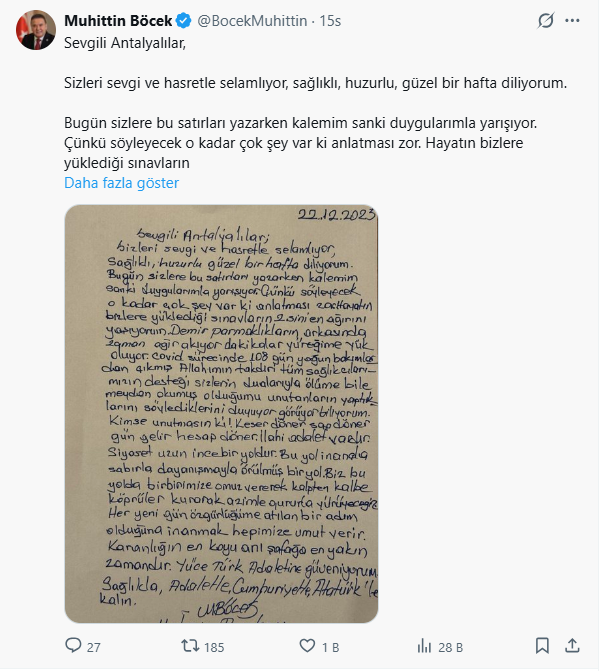 Muhittin Böcek @BocekMuhittin · 15s
Sevgili Antalyalılar,
Sizleri sevgi ve hasretle selamlıyor, sağlıklı, huzurlu, güzel bir hafta diliyorum.
Bugün sizlere bu satırları yazarken kalemim sanki duygularımla yarışıyor.
Çünkü söyleyecek o kadar çok şey var ki anlatması zor. Hayatın bizlere
yüklediği sınavların
Daha fazla göster
22.12.2025
Sevgili Antalyalılar;
Sizleri sevgi ve hasretle selamlıyor,
Sağlıklı, huzurlu güzel bir hafta diliyorum.
Bugün sizlere bu satırları yazarken kalemim
sanki duygularımla yarışıyor. Çünkü söyleyecek
o kadar çok şey var ki anlatması zor. Hayatın
bizlere yüklediği sınavların 2.sini en ağırını
yaşıyorum. Demir parmaklıkların arkasında
zaman ağır akıyor dakikalar yüreğime yük
oluyor. Covid sürecinde 108 gün yoğun bakımlar
dan çıkmış Allahımın takdiri tüm sağlıkcıları-
mızın desteği sizlerin dualarıyla ölüme bile
meydan okumuş olduğumu unutanların yaptık
larını söylediklerini duyuyor görüyor biliyorum.
Kimse unutmasın ki! Keser döner sap döner
gün gelir hesap döner. İlahi adalet vardır.
Siyaset uzun ince bir yoldur. Bu yol inançla
sabırla dayanışmayla örülmüş bir yol. Biz bu
yolda birbirimize omuz vererek kalpten kalbe
köprüler kurarak azimle gururla yürüyeceğiz
Her yeni gün özgürlüğüme atılan bir adım
olduğuna inanmak hepimize umut verir.
Karanlığın en koyu anı şafağa en yakın
zamandır. Yüce Türk Adaletine güveniyorum
Sağlıkla, Adaletle, Cumhuriyetle, Atatürk'le
kalın.
MBöcek
27 185 1 B 28 B